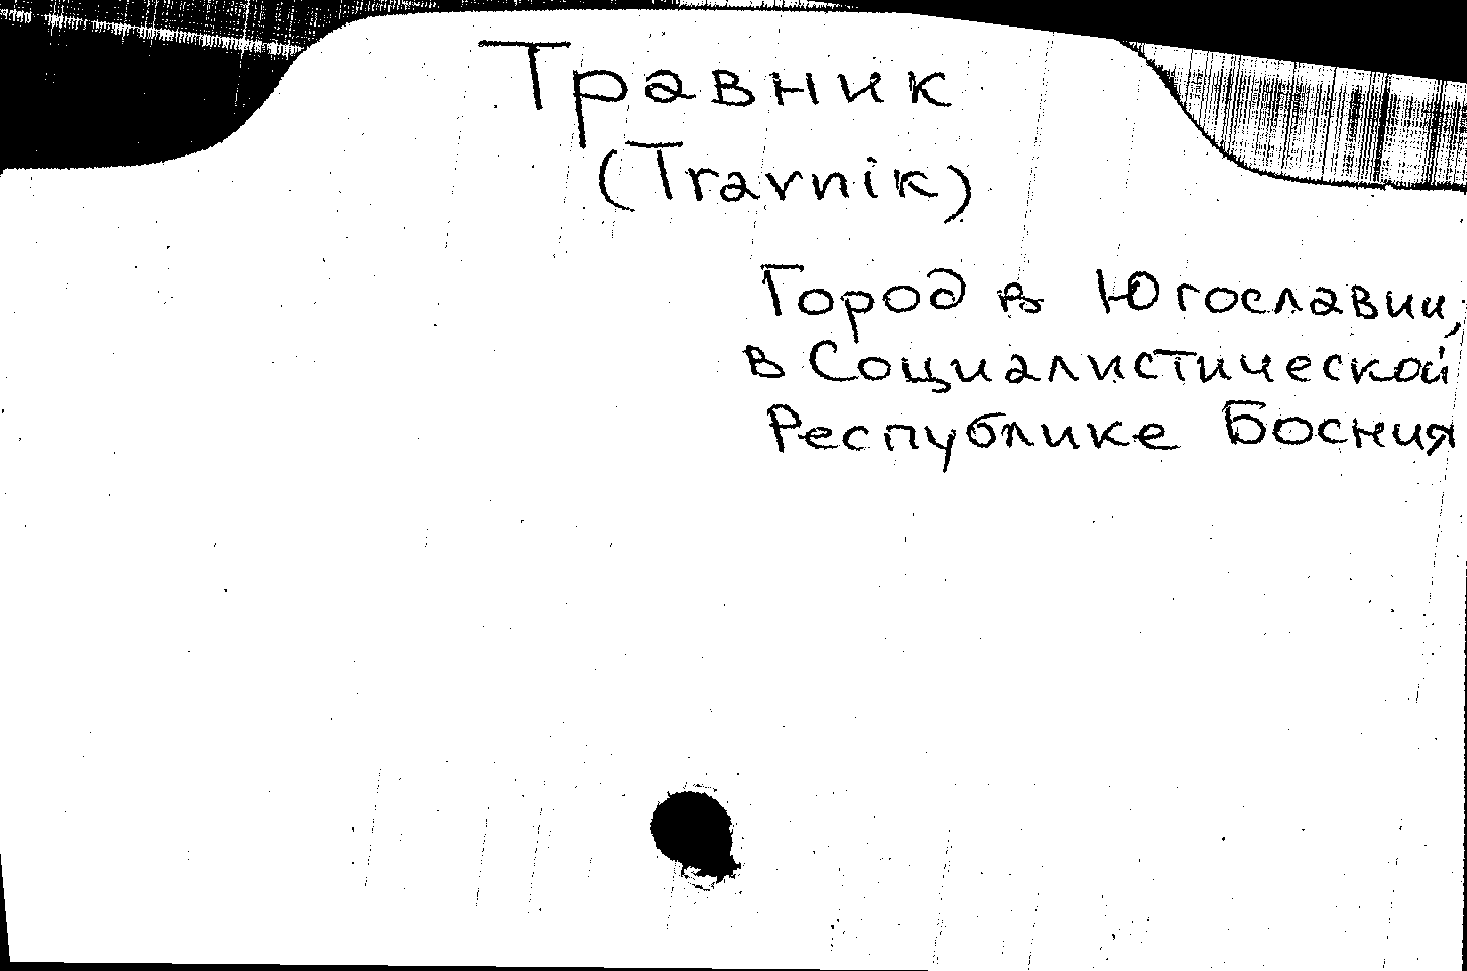 Травник
(Travnik)
Город в Югославии,
в Социалистической
Республике Босния